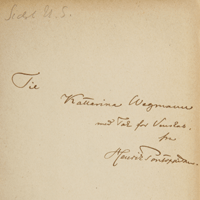 Til
Katharina Wegmann
med Tak for Venskab.
fra
Henrik Pontoppidan.